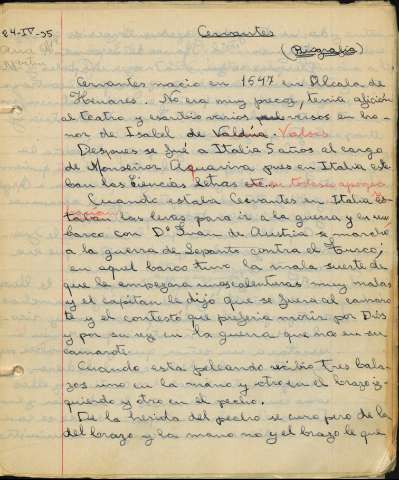 24-IV-35
Cervantes
(Biografía)
Cervantes nacio en 1547 en Alcala de
Henares. No era muy precoz, tenia afición
al teatro y escribio varios versos en ho-
nor de Isabel de Valdua. Valois
Despues se fué a Italia 5 años al cargo
de Monseñor Aquaviva pues en Italia esta-
ban las Ciencias Letras etc. su todo su apogeo
Cuando estaba Cervantes en Italia es-
taban las levas para ir a la guerra y en un
barco con Dº Juan de Austria se marcho
a la guerra de Lepanto contra el Turco;
en aquel barco tuvo la mala suerte de
que le empezaran unas calenturas muy malas
y el capitan le dijo que se fuera al camaro-
te y el contesto que preferia morir por Dios
y por su rey en la guerra que no en su
camarote.
Cuando esta peleando recibio tres bala-
zos uno en la mano y otro en el brazo iz-
quierdo y otro en el pecho.
De la herida del pecho se curo pero de la
del brazo y la mano no y el brazo le que